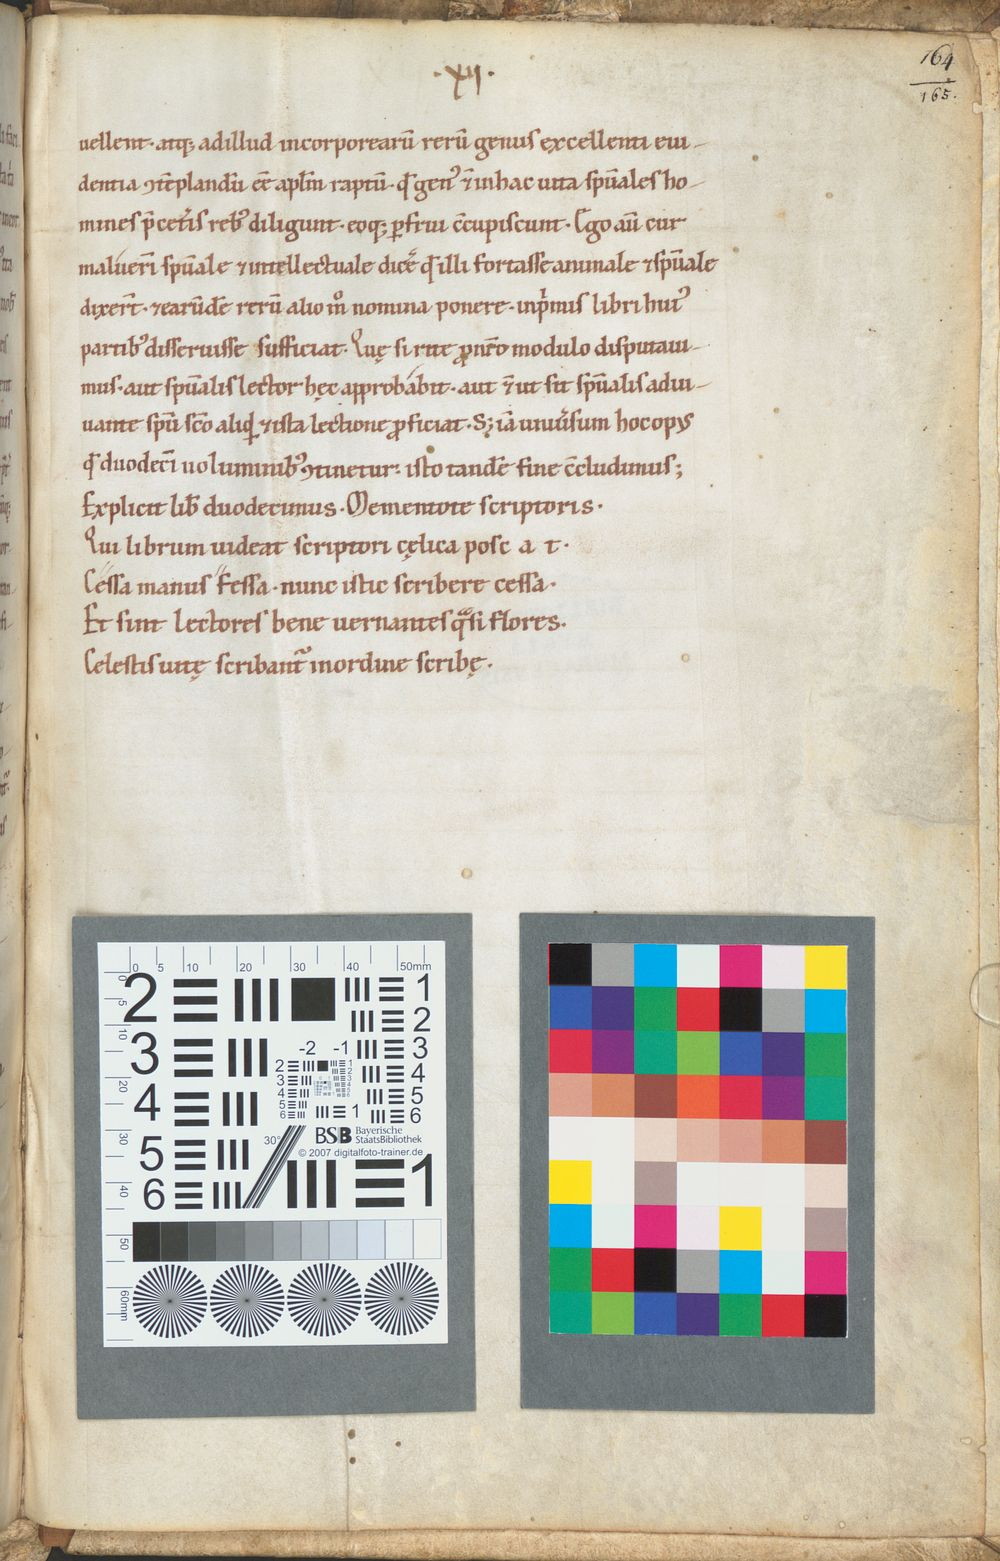 ·XII·
164
165.
uellent· atq; adillud incorporearū rerū genus excellenti eui-
dentia ꝯtēplandū eē aplm̄ raptū· qđ gen᷒ ⁊ inhac uita spūales ho-
mines p̄ cet̄is reb᷒ diligunt· eoq; ꝑfrui c̄cupiscunt· Ego aū cur
maluerī spūale ⁊ intellectuale dicē qđ illi fortasse animale ⁊ spūale
dixer̄t· ⁊ earūdē rerū alio mͦ nomina ponere· inpͥmis libri hui᷒
partib᷒ disseruisse sufficiat· Quę si rite ꝓ nr̄o modulo disputaui-
mus· aut spūalis lector hęc approbabit· aut ⁊ ut sit spūalis adiu-
uante spū sc̄o aliqđ ⁊ ista lectione ꝓficiat· S; iā uniūsum hoc opus
qđ duodecī uoluminib᷒ ꝯtinetur: isto tandē fine c̄cludimus;
Explicit lib̄ duodecimus· Mementote scriptoris·
Qui librum uideat scriptori cęlica posc a t·
Cessa manus fessa· nunc istic scribere cessa·
Et sint lectores bene uernantes qᷓsi flores·
Celestis uitę scribant᷑ in ordine scribę·
0 5 10 20 30 40 50mm
0 5 10 20 30 40 50 60mm
2 1
2
3 3
4 4
5 5
6 6
-2 -1
2 3 4 5 6
1
30°
BSB Bayerische
StaatsBibliothek
© 2007 digitalfoto-trainer.de
1